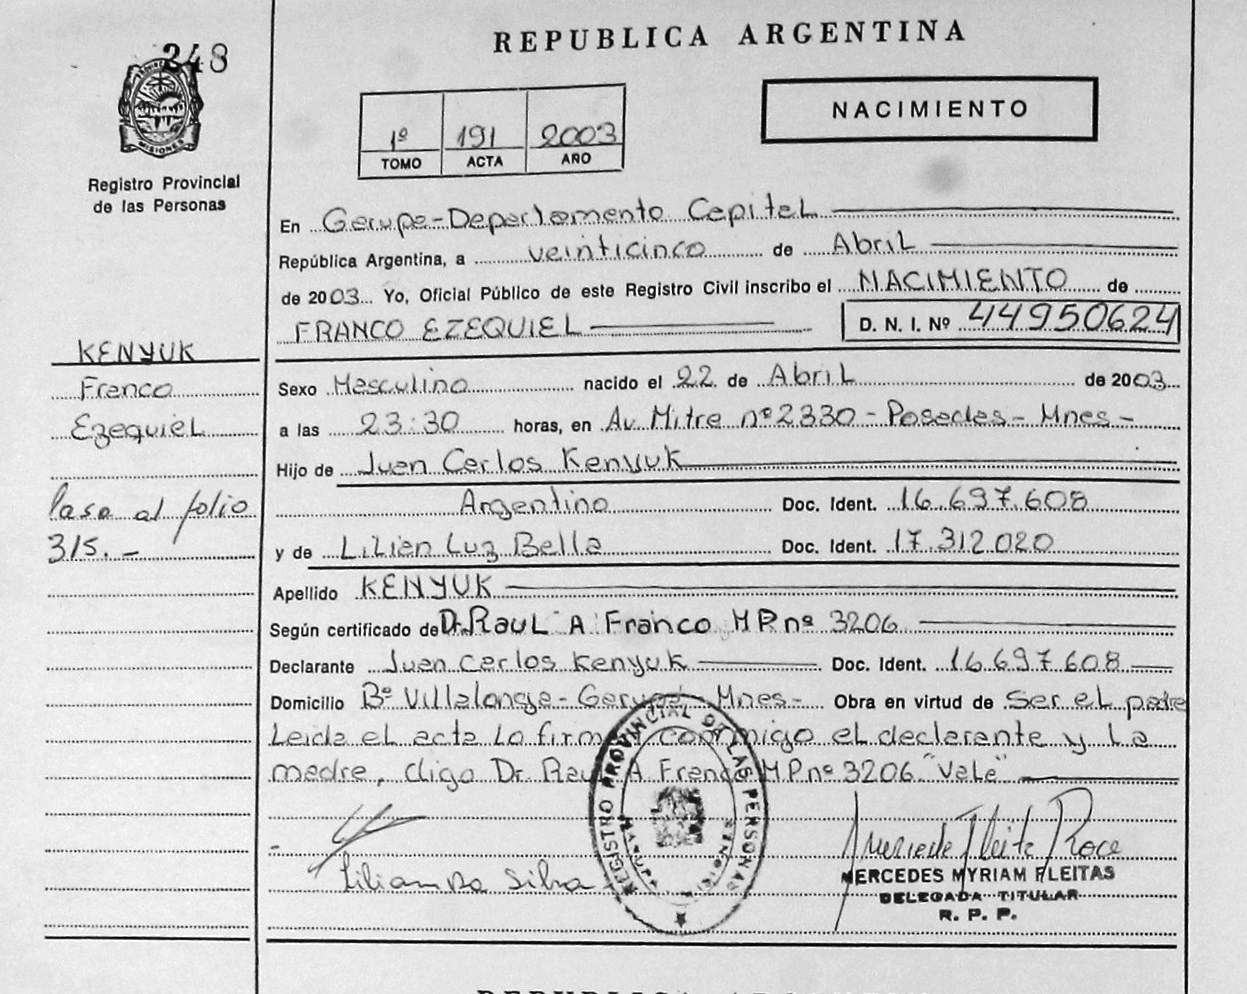 REPUBLICA ARGENTINA
248
MISIONES
Registro Provincial
de las Personas
1º 191 2003
TOMO ACTA AÑO
NACIMIENTO
En Garupa - Departamento Capital
República Argentina, a veinticinco de Abril
de 2003 Yo, Oficial Público de este Registro Civil inscribo el NACIMIENTO de
FRANCO EZEQUIEL D. N. I. Nº 44950624
KENYUK
Franco
Ezequiel
Pasa al folio
315.-
Sexo Masculino nacido el 22 de Abril de 2003
a las 23:30 horas, en Av. Mitre nº 2330 - Posadas - Mnes -
Hijo de Juan Carlos Kenyuk
Argentino Doc. Ident. 16.697.608
y de Lilian Luz Bella Doc. Ident. 17.312.020
Apellido KENYUK
Según certificado de Dr. Raul A Franco M.P. nº 3206
Declarante Juan Carlos Kenyuk Doc. Ident. 16.697.608
Domicilio Bº Villalonga - Garupa - Mnes - Obra en virtud de Ser el padre
Leida el acta la firman conmigo el declarante y la
madre, digo Dr. Raul A Franco M.P. nº 3206 "Vale"
REGISTRO PROVINCIAL DE LAS PERSONAS
MERCEDES MYRIAM FLEITAS
DELEGADA TITULAR
R. P. P.